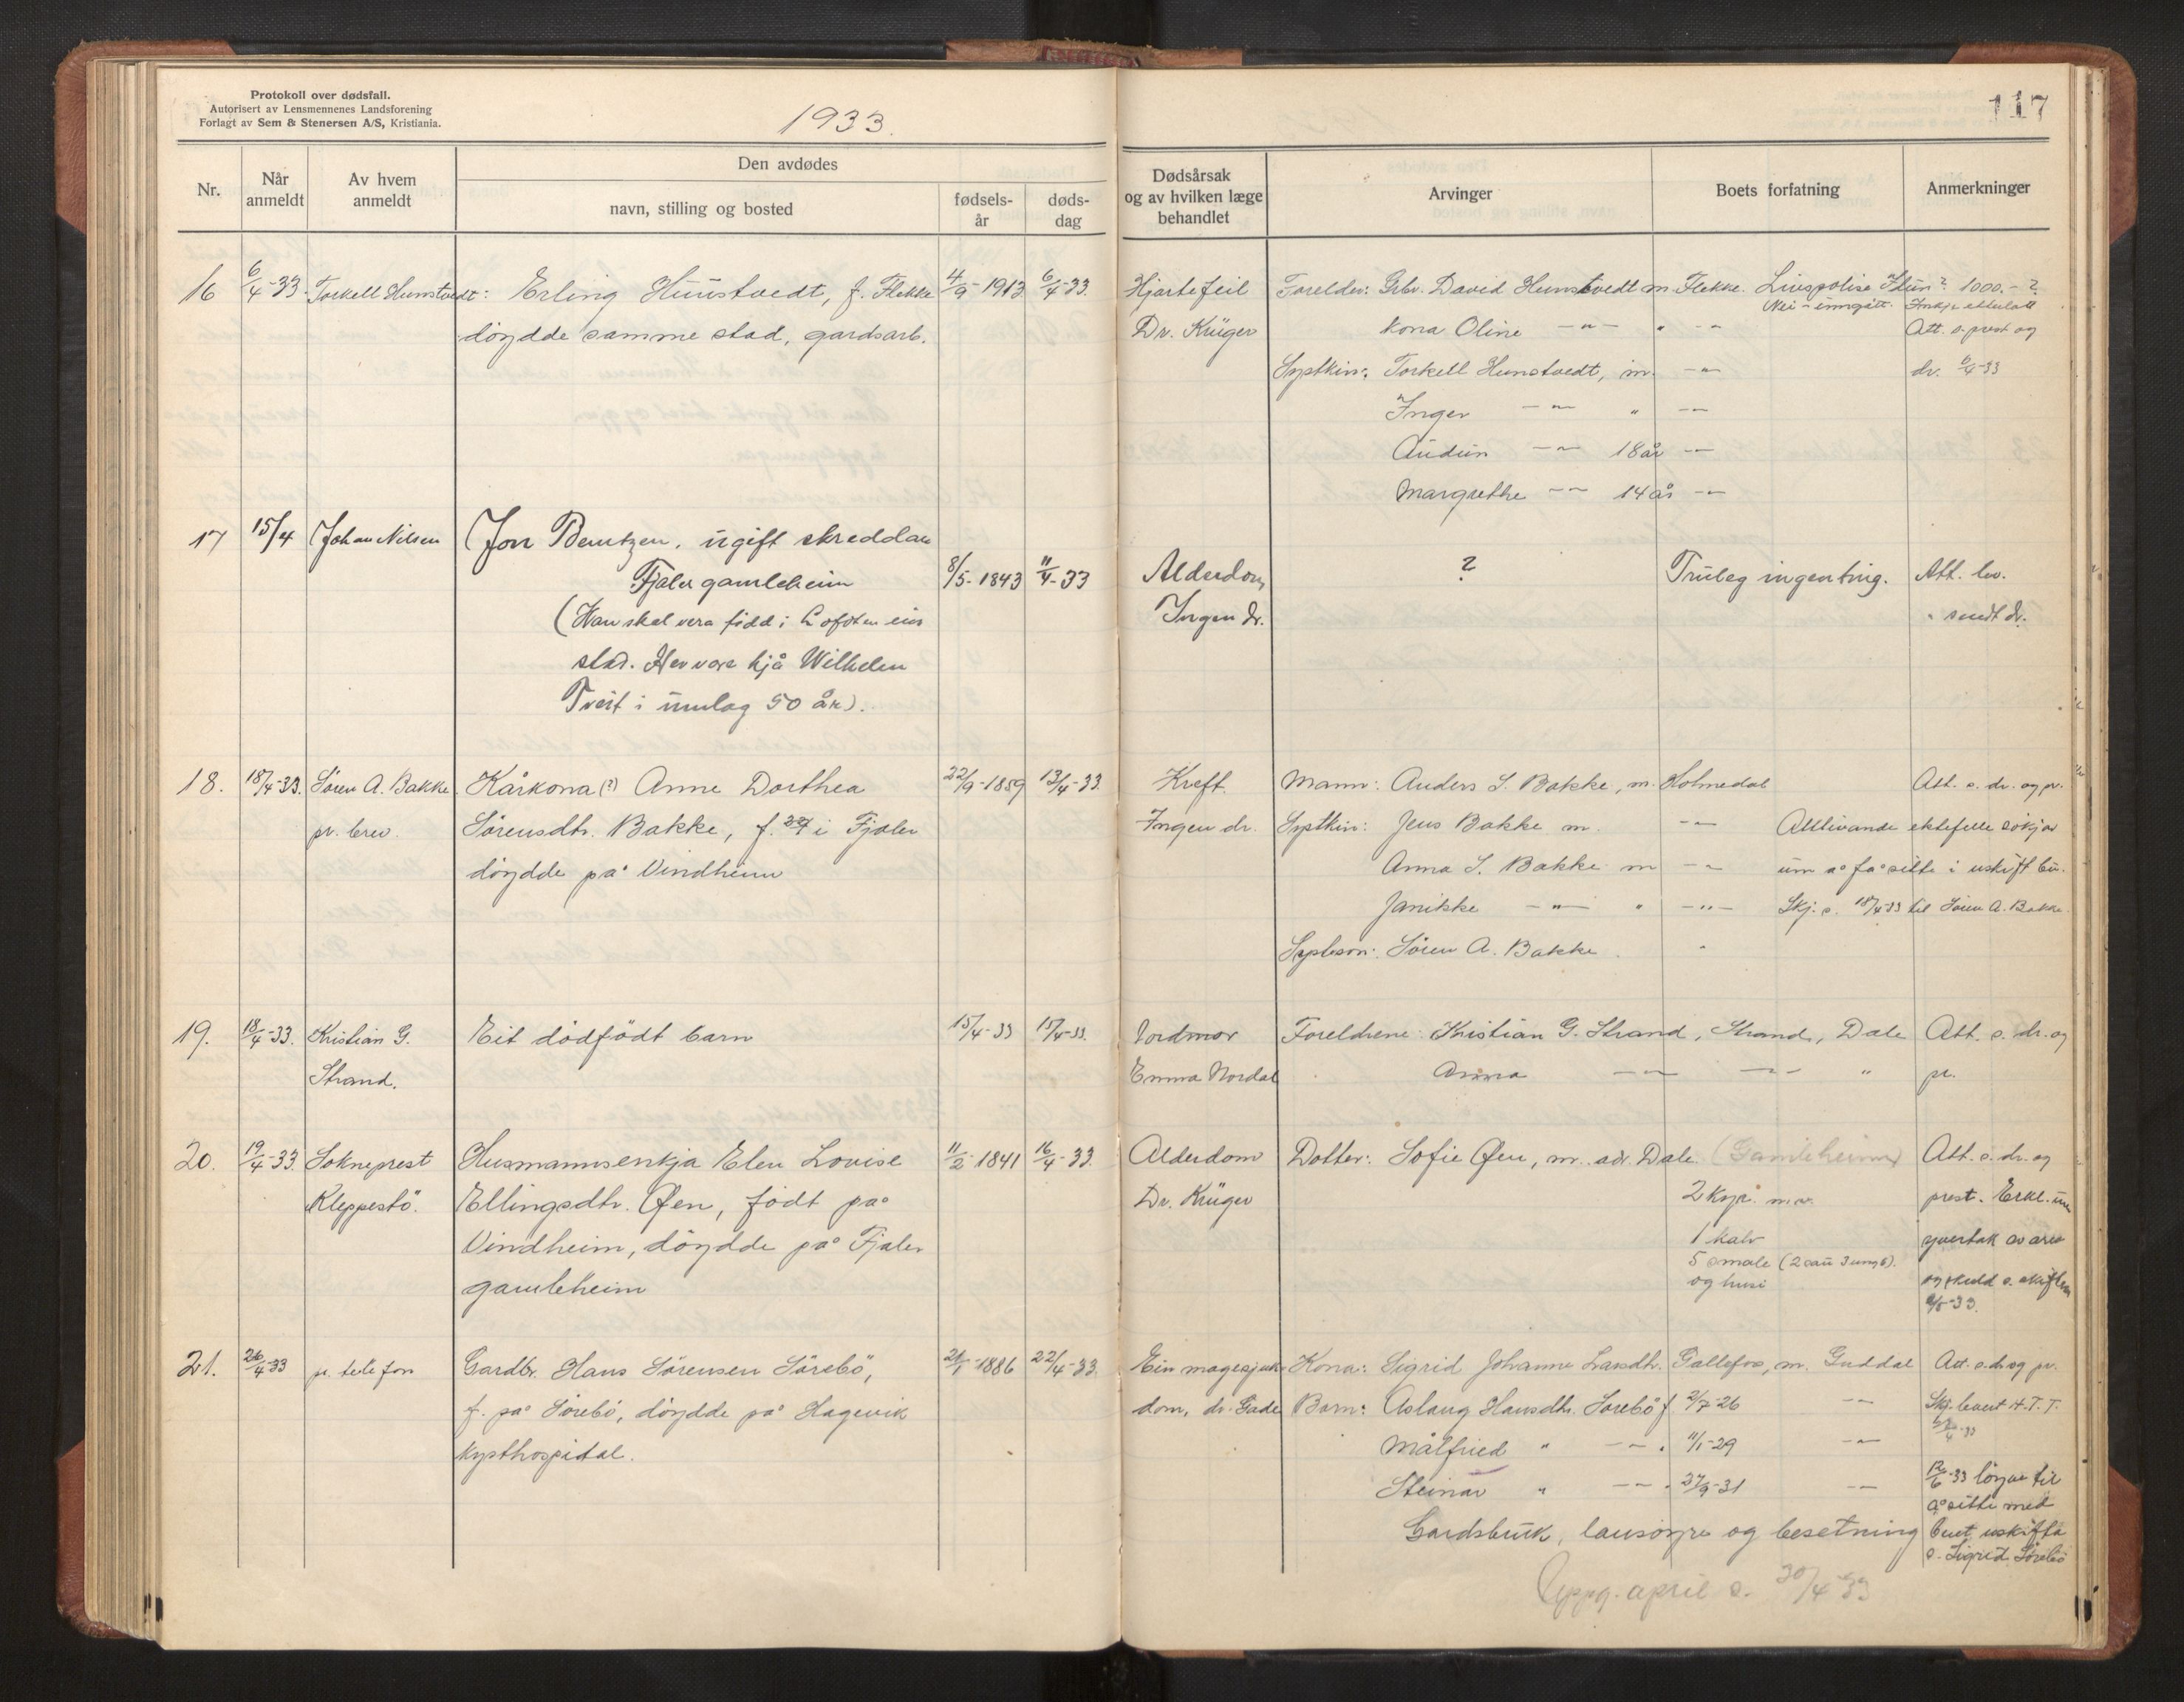 Protokoll over dødsfall.
Autorisert av Lensmennenes Landsforening
Forlagt av Sem & Stenersen A/S, Kristiania.
1933.
117
Nr.
Når anmeldt
Av hvem anmeldt
Den avdødes
navn, stilling og bosted
fødsels-år
døds-dag
Dødsårsak og av hvilken læge behandlet
Arvinger
Boets forfatning
Anmerkninger
16 6/4-33. Torkell Hunstvedt: Erling Hunstvedt, f. Flekke 4/9-1913 6/4-33. Hjartefeil Foreldr: Grbr. David Hunstvedt m. Flekke. Livspolise Idun? 1000.-?
Nei - inngått. Inkje etterlatt
døydde samme stad, gardsarb. Dr. Krüger Kona Oline -"- " -"- Att. s. prest og
Systkin: Torkell Hunstvedt, m. -"- dr. 6/4-33
Inger -"- " -"-
Audun -"- 18 år -"-
Margrethe -"- 14 år -"-
17 15/4 Johan Nilsen Jon Berntzen, ugift skreddar
Fjaler gamleheim 8/5-1843 11/4-33 Alderdom ? Truleg ingenting. Att. lev.
(Han skal vera född i Lofoten ein Ingen dr. " sendt dr.
stad. Hev vore hjå Wilhelm
Tveit i umlag 50 år).
18. 18/4-33. Sören A. Bakke Kårkona (?) Anne Dorthea 22/9-1859 13/4-33. Kreft. Mann: Anders S. Bakke, m. Holmedal Att. s. dr. og pr.
pr. brev. Sörensdtr. Bakke, f. i Fjaler Ingen dr. Systkin: Jens Bakke m. -"- Attlivande ektefelle sökjer
døydde på Vindheim Anna S. Bakke m -"- um å få sitte i uskift bu.
Janikke -"- " -"- Skj. s. 18/4-33 til Sören A. Bakke.
Systerson: Sören A. Bakke. "
19. 18/4-33. Kristian G. Eit dödfödt barn 15/4-33 15/4-33. Jordmor Foreldrene: Kristian G. Strand, Strand, Dale Att. s. dr. og
Strand. Emma Nordal Anna -"- -"- " pr.
20. 19/4-33. Sokneprest Husmannsenkja Elen Lovise 11/2-1841 16/4-33. Alderdom Dotter: Sofie Øen, m. adr. Dale. (Gamleheimen) Att. s. dr. og
Kleppestö. Ellingsdtr. Øen, födt på Dr. Krüger 2 kyr. m.v. prest. Erkl. um
Vindheim, døydde på Fjaler 1 kalv yvertak av arv
5 smale (2 sau 3 ung).
gamleheim og hus og skuld s. skifter.
21. 26/4-33 pr. telefon Gardbr. Hans Sörensen Sörebö, 1886 22/4-33. Ein magesjuk- Kona: Sigrid Johanne Larsdtr. Gallefos, m. Guddal Att. s. dr. og pr.
f. på Sörebö, døydde på Hagevik dom, dr. Gade Born: Aslaug Hansdtr. Sörebö f. 2/7-26 -"- Skj. levert H.T.T.
kysthospital. Målfried " -"- " 11/1-29 -"-
Steinar " -"- " 27/9-31 -"- 12/6-33 löyve til
å sitte med
Gardsbruk, lausöyre og besetning buet uskifta
s. Sigrid Sörebö
Uppg. april s. 30/4-33